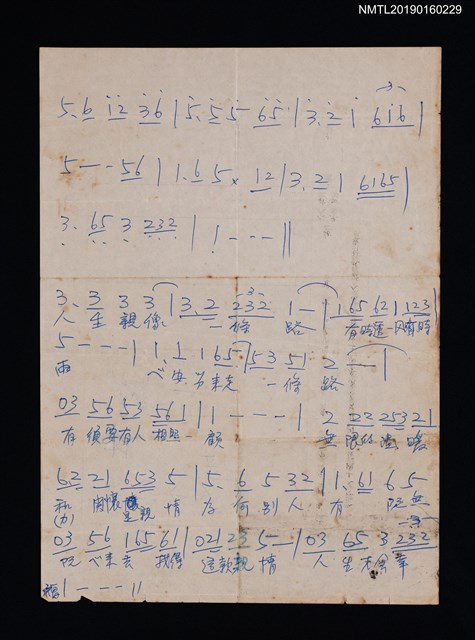 NMTL20190160229
5. 6 i 2 36 | 5. 5 5 65 | 3. 2 i 6i6 |
5 - - 56 | 1. 6 5 × 12 | 3. 2 1 6165 |
3. 65 3 232 | 1 - - - ||
3. 3 3 3 | 3. 2 232 1 - | 1 65 62 1 123 |
人 生 親 像 一 條 路 有時 一 有時
5 - - - | 1. 1 1 65 | 53 51 2 - - |
雨 一 條 路
03 56 53 561 | 1 - - - | 2 22 253 21
有 須要有人 相照 顧 無 限的 溫 暖
62 21 653 5 | 5. 6 5 32 | 1. 61 6 5
和 關懷 是親 情 為 何 別 人 有 阮 無
(力)
03 56 165 61 | 021 23 5 - | 03 65 3 232
阮 去 我傷 這款親 情 人 生 才會 幸
福 1 - - - ||